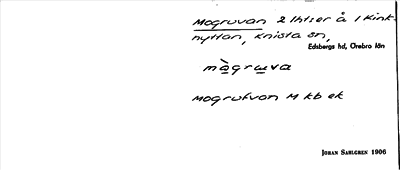 Mogruvan 2 lhtser å 1 Kink-
nyttan, Knista sn,
Edsbergs hd, Örebro län
mògrɯva
Mogrufvan M kb ek
JOHAN SAHLGREN 1906